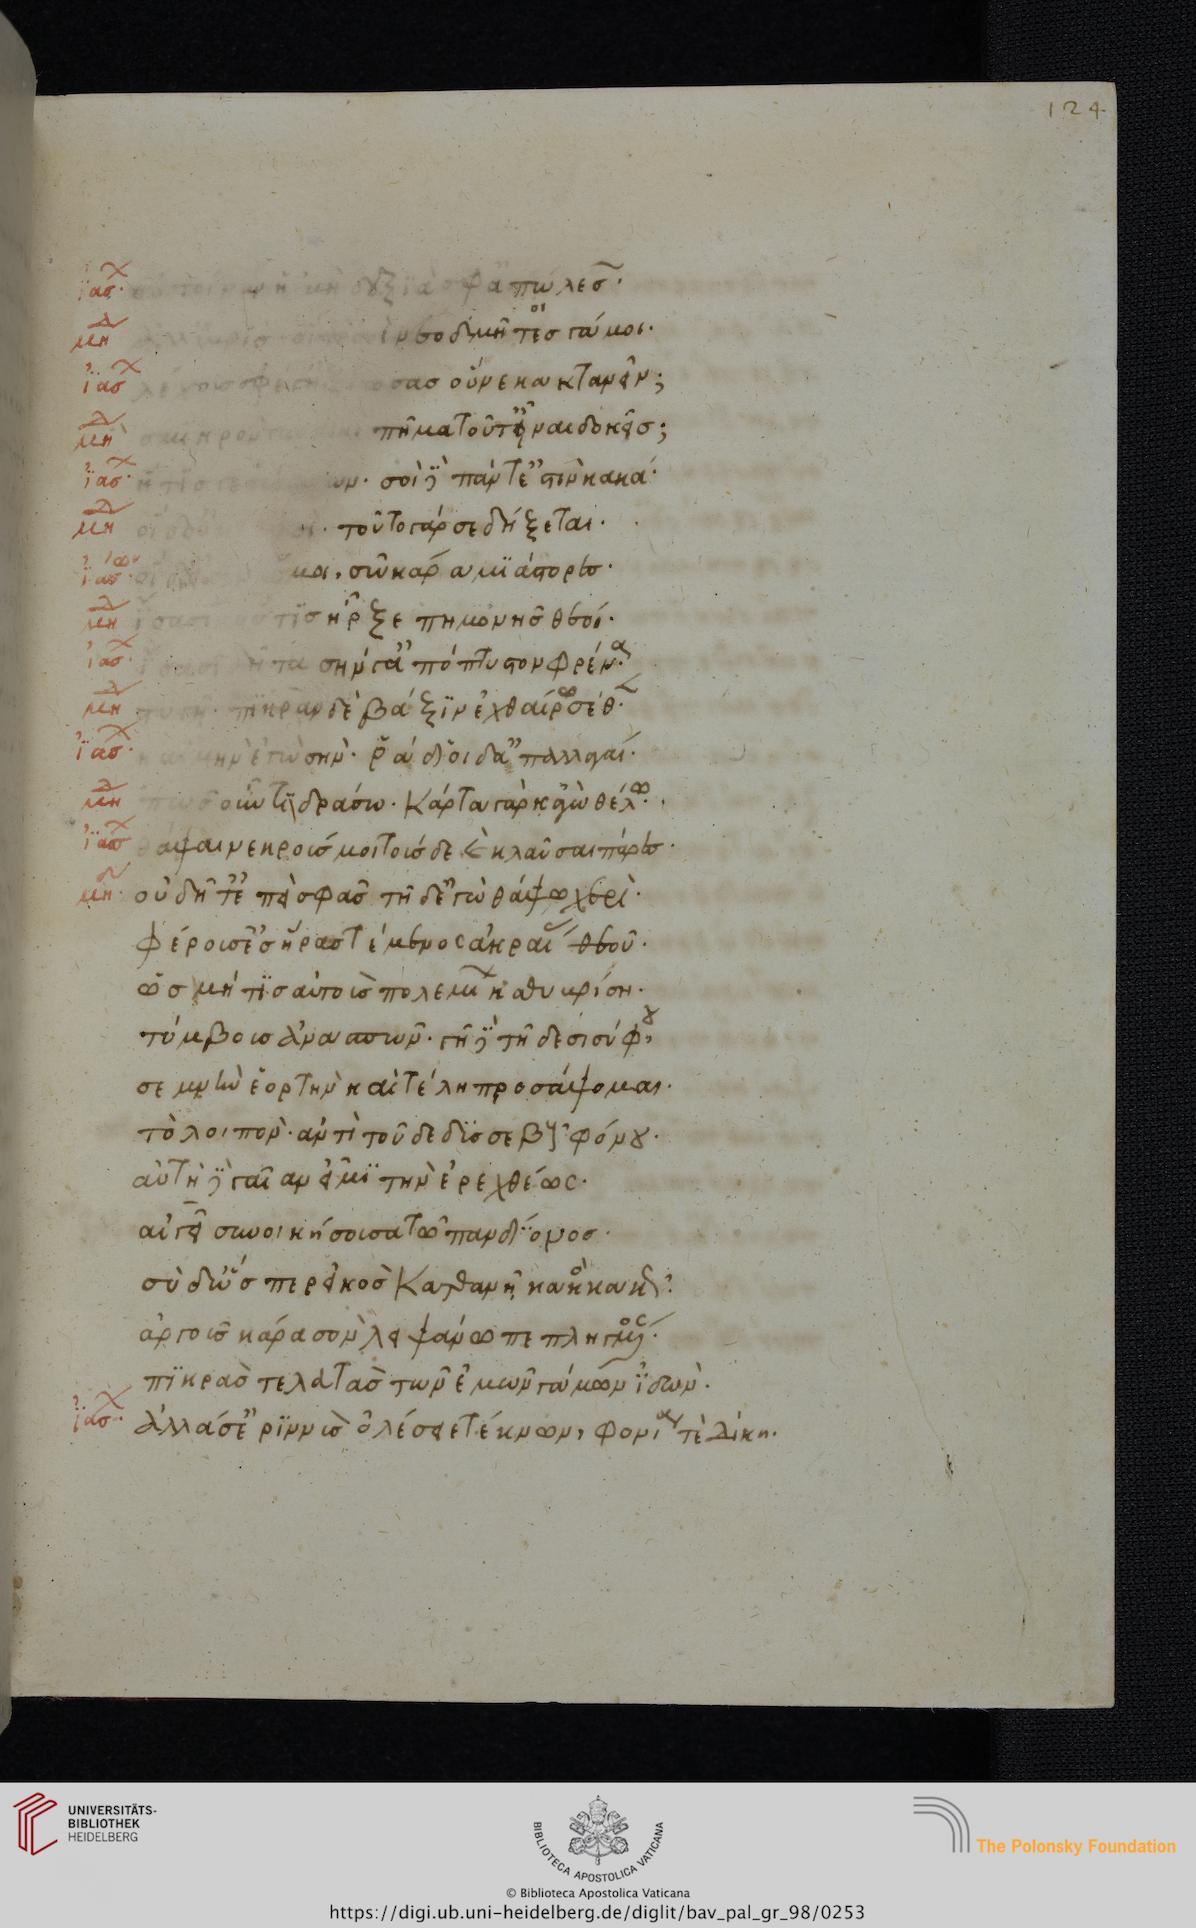 124
ἰασ. οὔτοι νυν ἡμὴ δεξιὰ σφ' ἀπώλεσ.
μη ὕβρισ οἵ τε σοὶ νεοδμῆτεσ γάμοι.
ἰασ οὕνεκα κτανεῖν;
μη σμικρὸν πῆμα τοῦτ' εἶναι δοκεῖσ;
ἰασ. ἥτισ σοὶ δὲ πάντ' ἐστὶν κακά.
μη τοῦτο γάρ σε δήξεται.
ἰασ. μοι, σῶ κάρα μιάστορεσ.
μη ἴσασιν ὅστισ ἦρξε πημονῆσ θεοί.
ἰασ. ἴσασι δῆτα σήν γ' ἀπόπτυστον φρένα.
μη πικρὰν δὲ βάξιν ἐχθαίρω σέθεν.
ἰασ. καὶ μὴν ἐγὼ σήν. ῥάδιοι δ' ἀπαλλαγαί.
μη πῶσ οὖν τί δράσω. κάρτα γὰρ κἀγὼ θέλω.
ἰασ θάψαι νεκρούσ μοι τούσδε καὶ κλαῦσαι πάρεσ.
μη. οὐ δῆτ' ἐπεὶ σφᾶσ τῆδ' ἐγὼ θάψω χερί.
φέρουσ' ἐσ ἥρασ τέμενοσ ἀκραίας θεοῦ.
ὡσ μή τισ αὐτοὺσ πολεμίων καθυβρίση.
τύμβουσ ἀνασπῶν. γῆ δὲ τῆδε σισύφου
σεμνὴν ἑορτὴν καὶ τέλη προσάψομαι.
τὸ λοιπὸν. ἀντὶ τοῦδε δυσσεβοῦς φόνου.
αὐτὴ δὲ γαῖαν εἶμι τὴν ἐρεχθέως.
αἰγεῖ συνοικήσουσα τῶ πανδίονοσ.
σὺ δ' ὥσπερ εἰκὸσ κατθανῆ κακὸς κακῶς.
ἀργοῦσ κάρα σὸν λειψάνω πεπληγμένος.
πικρὰσ τελευτὰσ τῶν ἐμῶν γάμων ἰδών.
ἰασ. ἀλλά σ' ἐρινὺσ ὀλέσειε τέκνων, φονία τε δίκη.
UNIVERSITÄTS-
BIBLIOTHEK
HEIDELBERG
BIBLIOTECA APOSTOLICA VATICANA
© Biblioteca Apostolica Vaticana
The Polonsky Foundation
https://digi.ub.uni-heidelberg.de/diglit/bav_pal_gr_98/0253